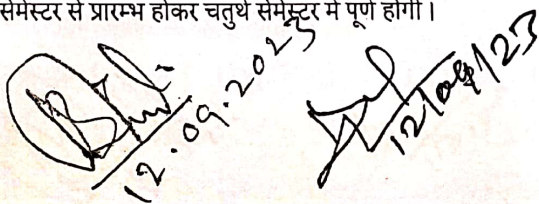 सेमेस्टर से प्रारम्भ होकर चतुर्थ सेमेस्टर में पूर्ण होगी।
12.09.2023
12/09/23